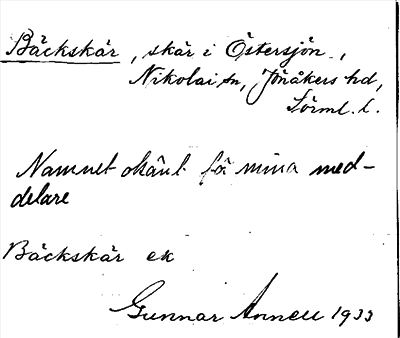 Bäckskär, skär i Östersjön,
Nikolai sn, Jönåkers hd,
Sörml. l.
Namnet okänt för mina med-
delare
Bäckskär ek
Gunnar Annell 1933